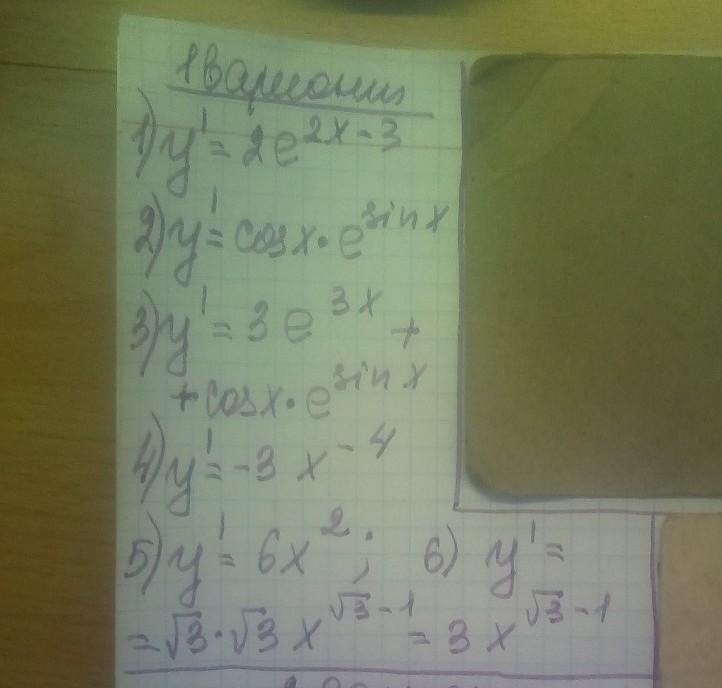 1 Вариант
1) y' = 2e^{2x-3}
2) y' = cosx·e^{sinx}
3) y' = 3e^{3x} +
+ cosx·e^{sinx}
4) y' = -3x^{-4}
5) y' = 6x^{2}; 6) y' =
= √3·√3 x^{√3-1} = 3x^{√3-1}